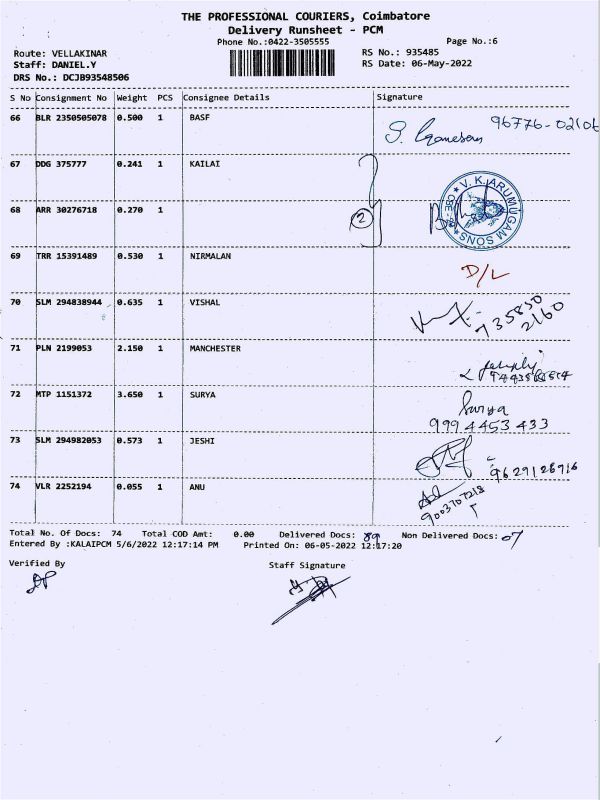 THE PROFESSIONAL COURIERS, Coimbatore
Delivery Runsheet - PCM
Phone No.:0422-3505555
Page No.:6
Route: VELLAKINAR
RS No.: 935485
Staff: DANIEL.Y
RS Date: 06-May-2022
DRS No.: DCJB93548506
S No Consignment No Weight PCS Consignee Details Signature
66 BLR 2350505078 0.500 1 BASF
96776-02106
67 DDG 375777 0.241 1 KAILAI
68 ARR 30276718 0.270 1
2
V.K. ARUMUGAM SONS
69 TRR 15391489 0.530 1 NIRMALAN
D/L
70 SLM 294838944 0.635 1 VISHAL
735850
2160
71 PLN 2199053 2.150 1 MANCHESTER
72 MTP 1151372 3.650 1 SURYA
Surya
9994453433
73 SLM 294982053 0.573 1 JESHI
9629128916
74 VLR 2252194 0.055 1 ANU
9003707218
Total No. Of Docs: 74 Total COD Amt: 0.00 Delivered Docs: Non Delivered Docs: 07
Entered By :KALAIPCM 5/6/2022 12:17:14 PM Printed On: 06-05-2022 12:17:20
Verified By
Staff Signature